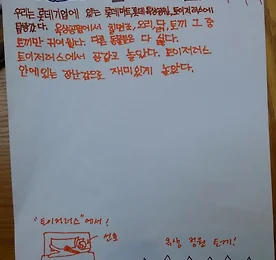 우리는 롯데기업에 있는 롯데마트, 롯데옥상공원, 토이저러스에
탐방갔다. 옥상공원에서 닭, 토끼 그 중
토끼만 귀여웠다. 다른 동물들은 다 싫다.
토이저러스에서 장감고 놀았다. 토이저러스
안에있는 장난감으로 재미있게 놀았다.
"토이저러스"에서!
선호
옥상 정원 토끼!